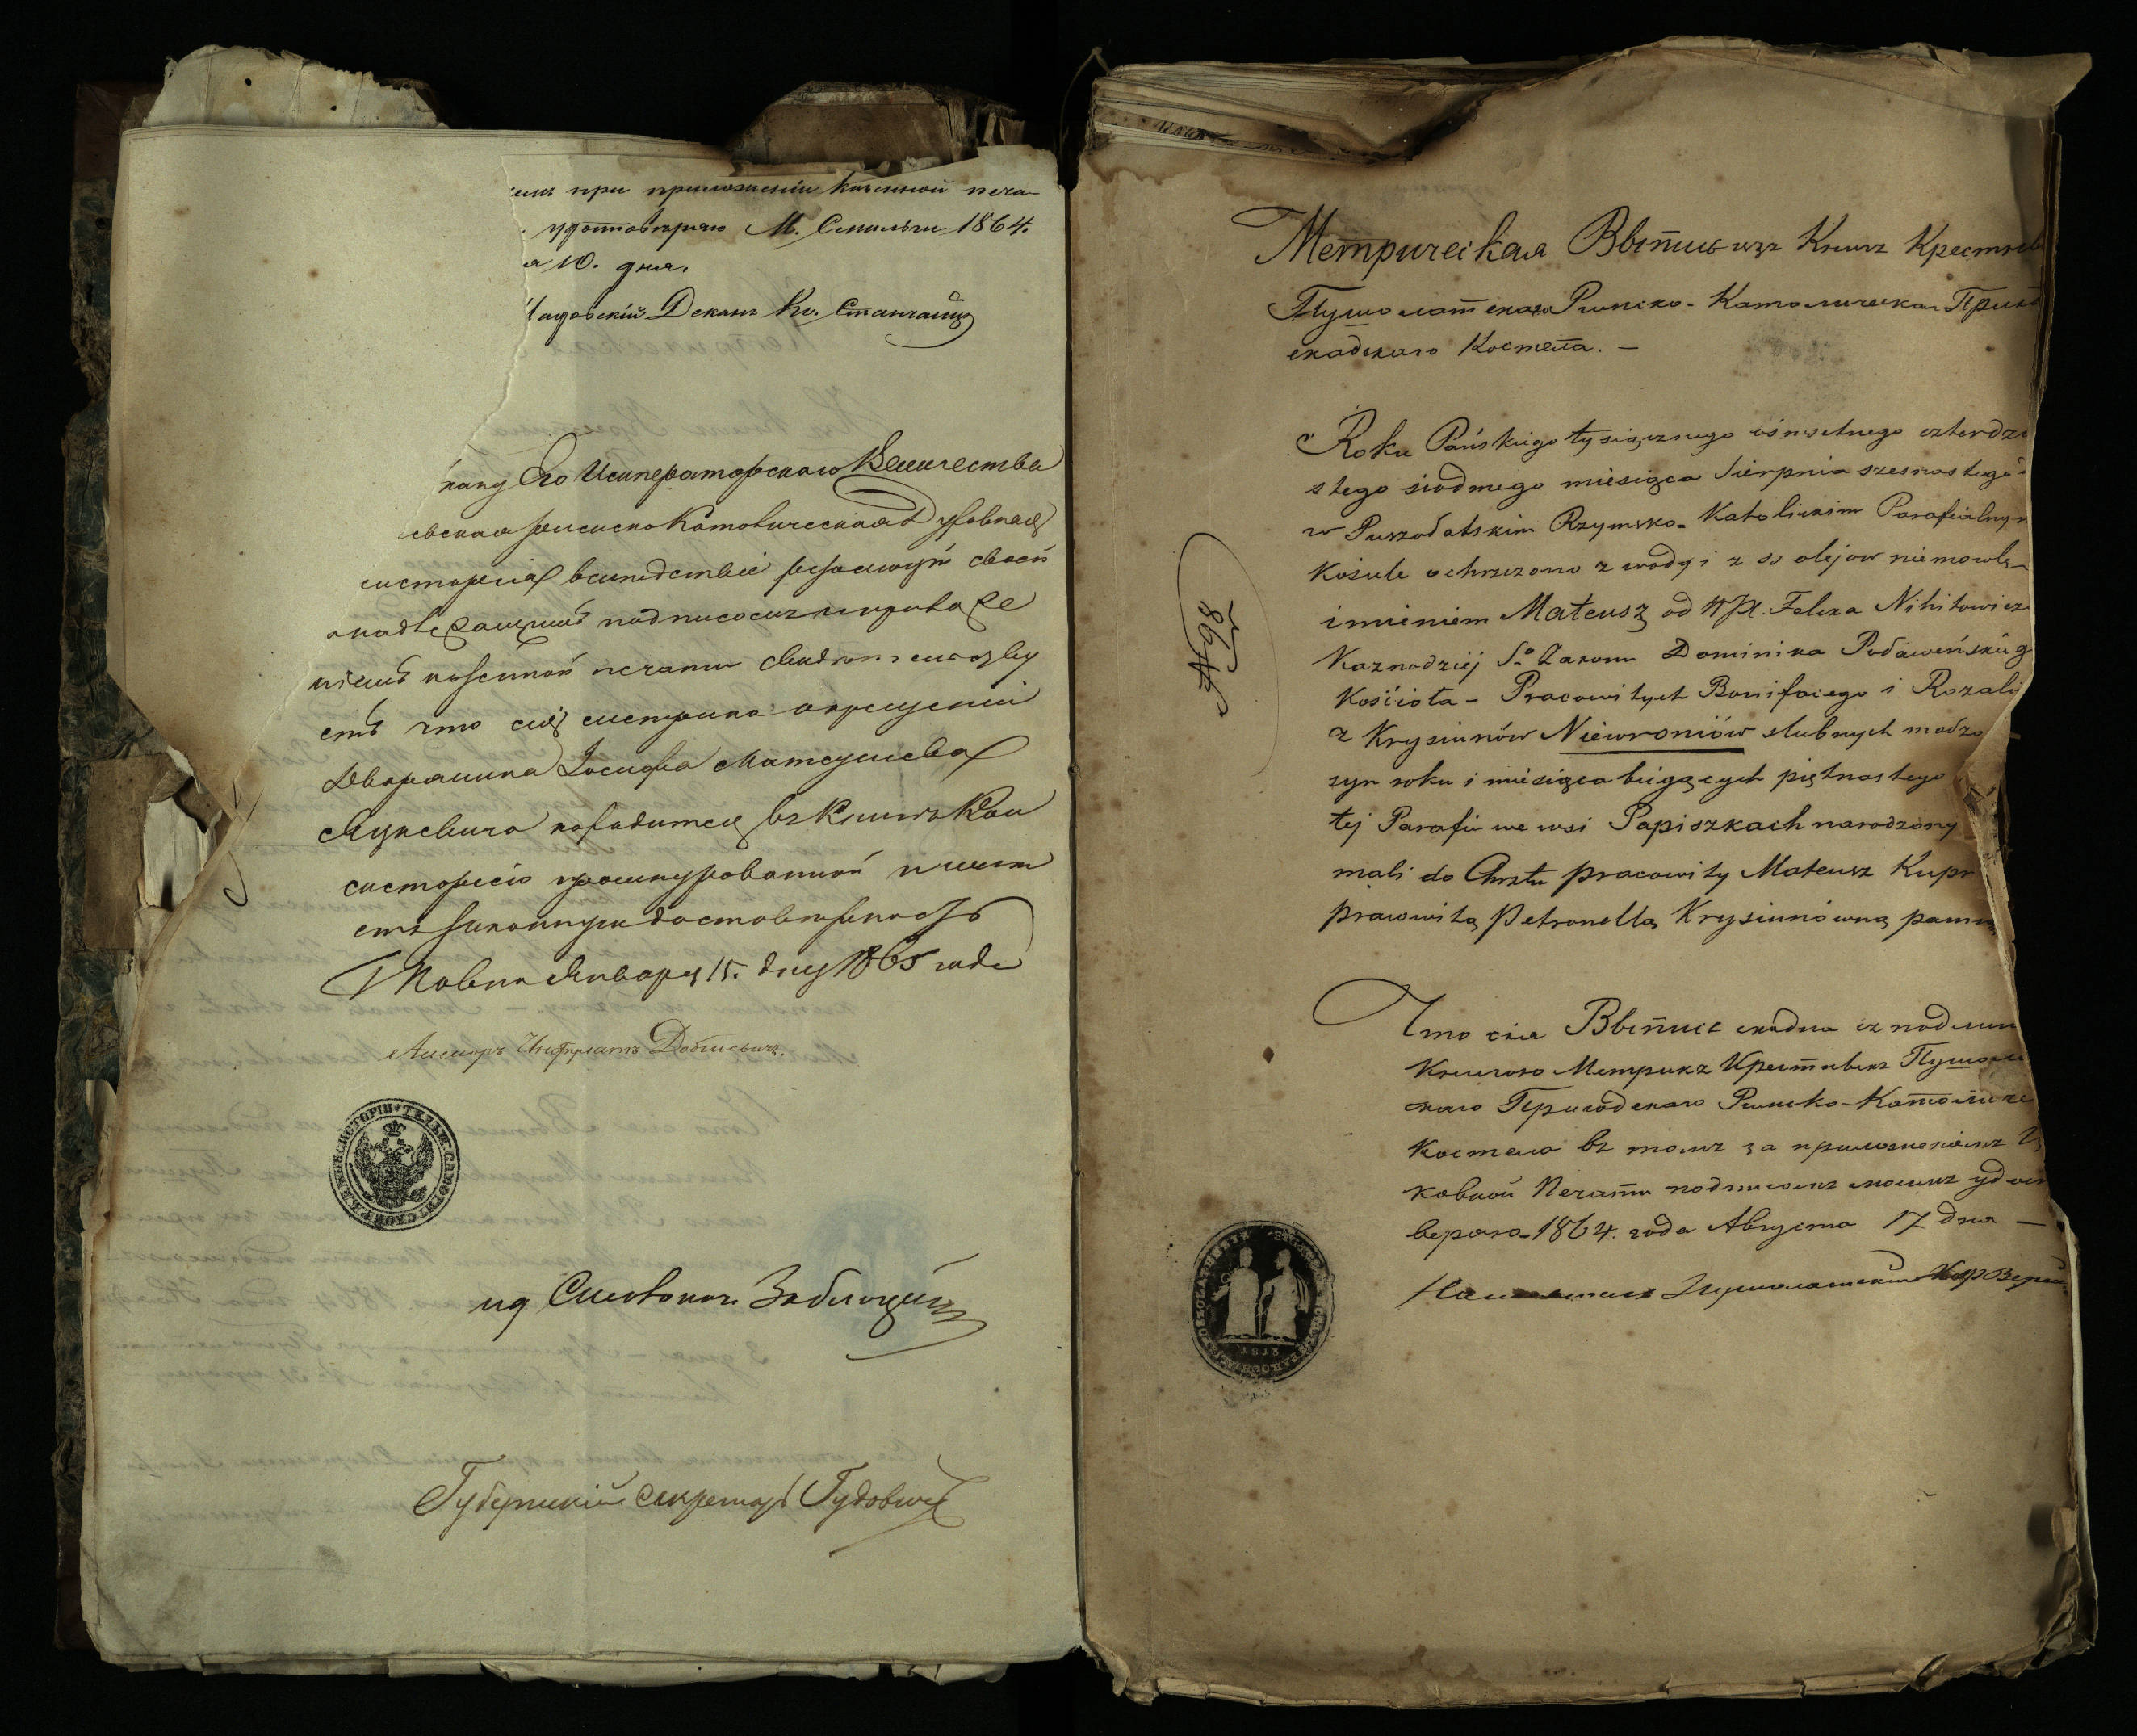 при приложеніи казенной печа-
удостовѣряю М. Смильги 1864.
а 10. дня.
Деканъ Кс.
Его Императорскаго Величества
Римско Католическая Духовная
систорія вслѣдствіе резолюціи своей
надлежащимъ подписомъ и прилож
ніемъ казенной печати свидѣтельству
етъ что сія метрика о крещеніи
Дворянина Іосифа Матеушева
находится въ книгѣ Кон
систоріею прошнурованной и имѣ
етъ законную достовѣрность
Г Ковно Января 15. дня 1865 года
Ассесоръ Прелатъ
ид Столонач. Заблоцкій
Губернскій Секретарь Гудовичъ
Метрическая Выпись изъ Книгъ Крестныхъ
Пушолатскаго Римско-Католическаго Приход
скаго Костела. —
Roku Pańskiego tysiącznego ośmsetnego czterdzie
stego siodmego miesiąca Sierpnia szesnastego
w Puszołatskim Rzymsko-Katolickim Parafialnym
Kościele ochrzczono z wody i z SS olejow niemowlę
imieniem Mateusz od WJX. Felixa
Kaznodziej Sº Zakonu Dominika
Kościoła – Pracowitych Bonifacego i Rozalij
z Krysiunów Niewroniów slubnych małżo
syn roku i miesiąca biegących piętnastego
tej Parafii we wsi Papiszkach narodzony
mali do Chrztu pracowity Mateusz Kupr
pracowitą Petronellą Krysiunówną pann
№ 98
Что сія Выпись сходна съ подлин
Книгою Метрикъ Крестныхъ Пушола
скаго Приходскаго Римско-Католиче
Костела въ томъ за приложеніемъ Ц
ковной Печати подписомъ моимъ удосто
веряю – 1864. года Августа 17 дня —
Пушолатскій